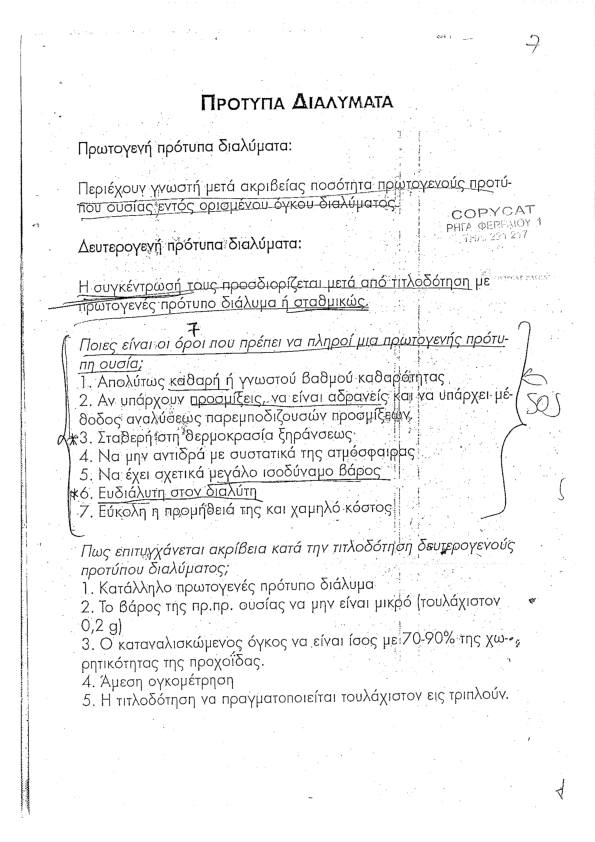 7
ΠΡΟΤΥΠΑ ΔΙΑΛΥΜΑΤΑ
Πρωτογενή πρότυπα διαλύματα:
Περιέχουν γνωστή μετά ακριβείας ποσότητα πρωτογενούς προτύ-
που ουσίας εντός ορισμένου όγκου διαλύματος.
COPYCAT
ΡΗΓΑ ΦΕΡΑΙΟΥ 1
Δευτερογενή πρότυπα διαλύματα:
Η συγκέντρωσή τους προσδιορίζεται μετά από τιτλοδότηση με
πρωτογενές πρότυπο διάλυμα ή σταθμικώς.
7
Ποιες είναι οι όροι που πρέπει να πληροί μια πρωτογενής πρότυ-
πη ουσία;
1. Απολύτως καθαρή ή γνωστού βαθμού καθαρότητας
2. Αν υπάρχουν προσμίξεις, να είναι αδρανείς και να υπάρχει μέ-
θοδος αναλύσεως παρεμποδιζουσών προσμίξεων.
SOS
*3. Σταθερή στη θερμοκρασία ξηράνσεως
4. Να μην αντιδρά με συστατικά της ατμόσφαιρας
5. Να έχει σχετικά μεγάλο ισοδύναμο βάρος
*6. Ευδιάλυτη στον διαλύτη
7. Εύκολη η προμήθειά της και χαμηλό κόστος
Πως επιτυγχάνεται ακρίβεια κατά την τιτλοδότηση δευτερογενούς
προτύπου διαλύματος;
1. Κατάλληλο πρωτογενές πρότυπο διάλυμα
2. Το βάρος της πρ.πρ. ουσίας να μην είναι μικρό (τουλάχιστον
0,2 g)
3. Ο καταναλισκώμενος όγκος να είναι ίσος με 70-90% της χω-
ρητικότητας της προχοΐδας.
4. Άμεση ογκομέτρηση
5. Η τιτλοδότηση να πραγματοποιείται τουλάχιστον εις τριπλούν.